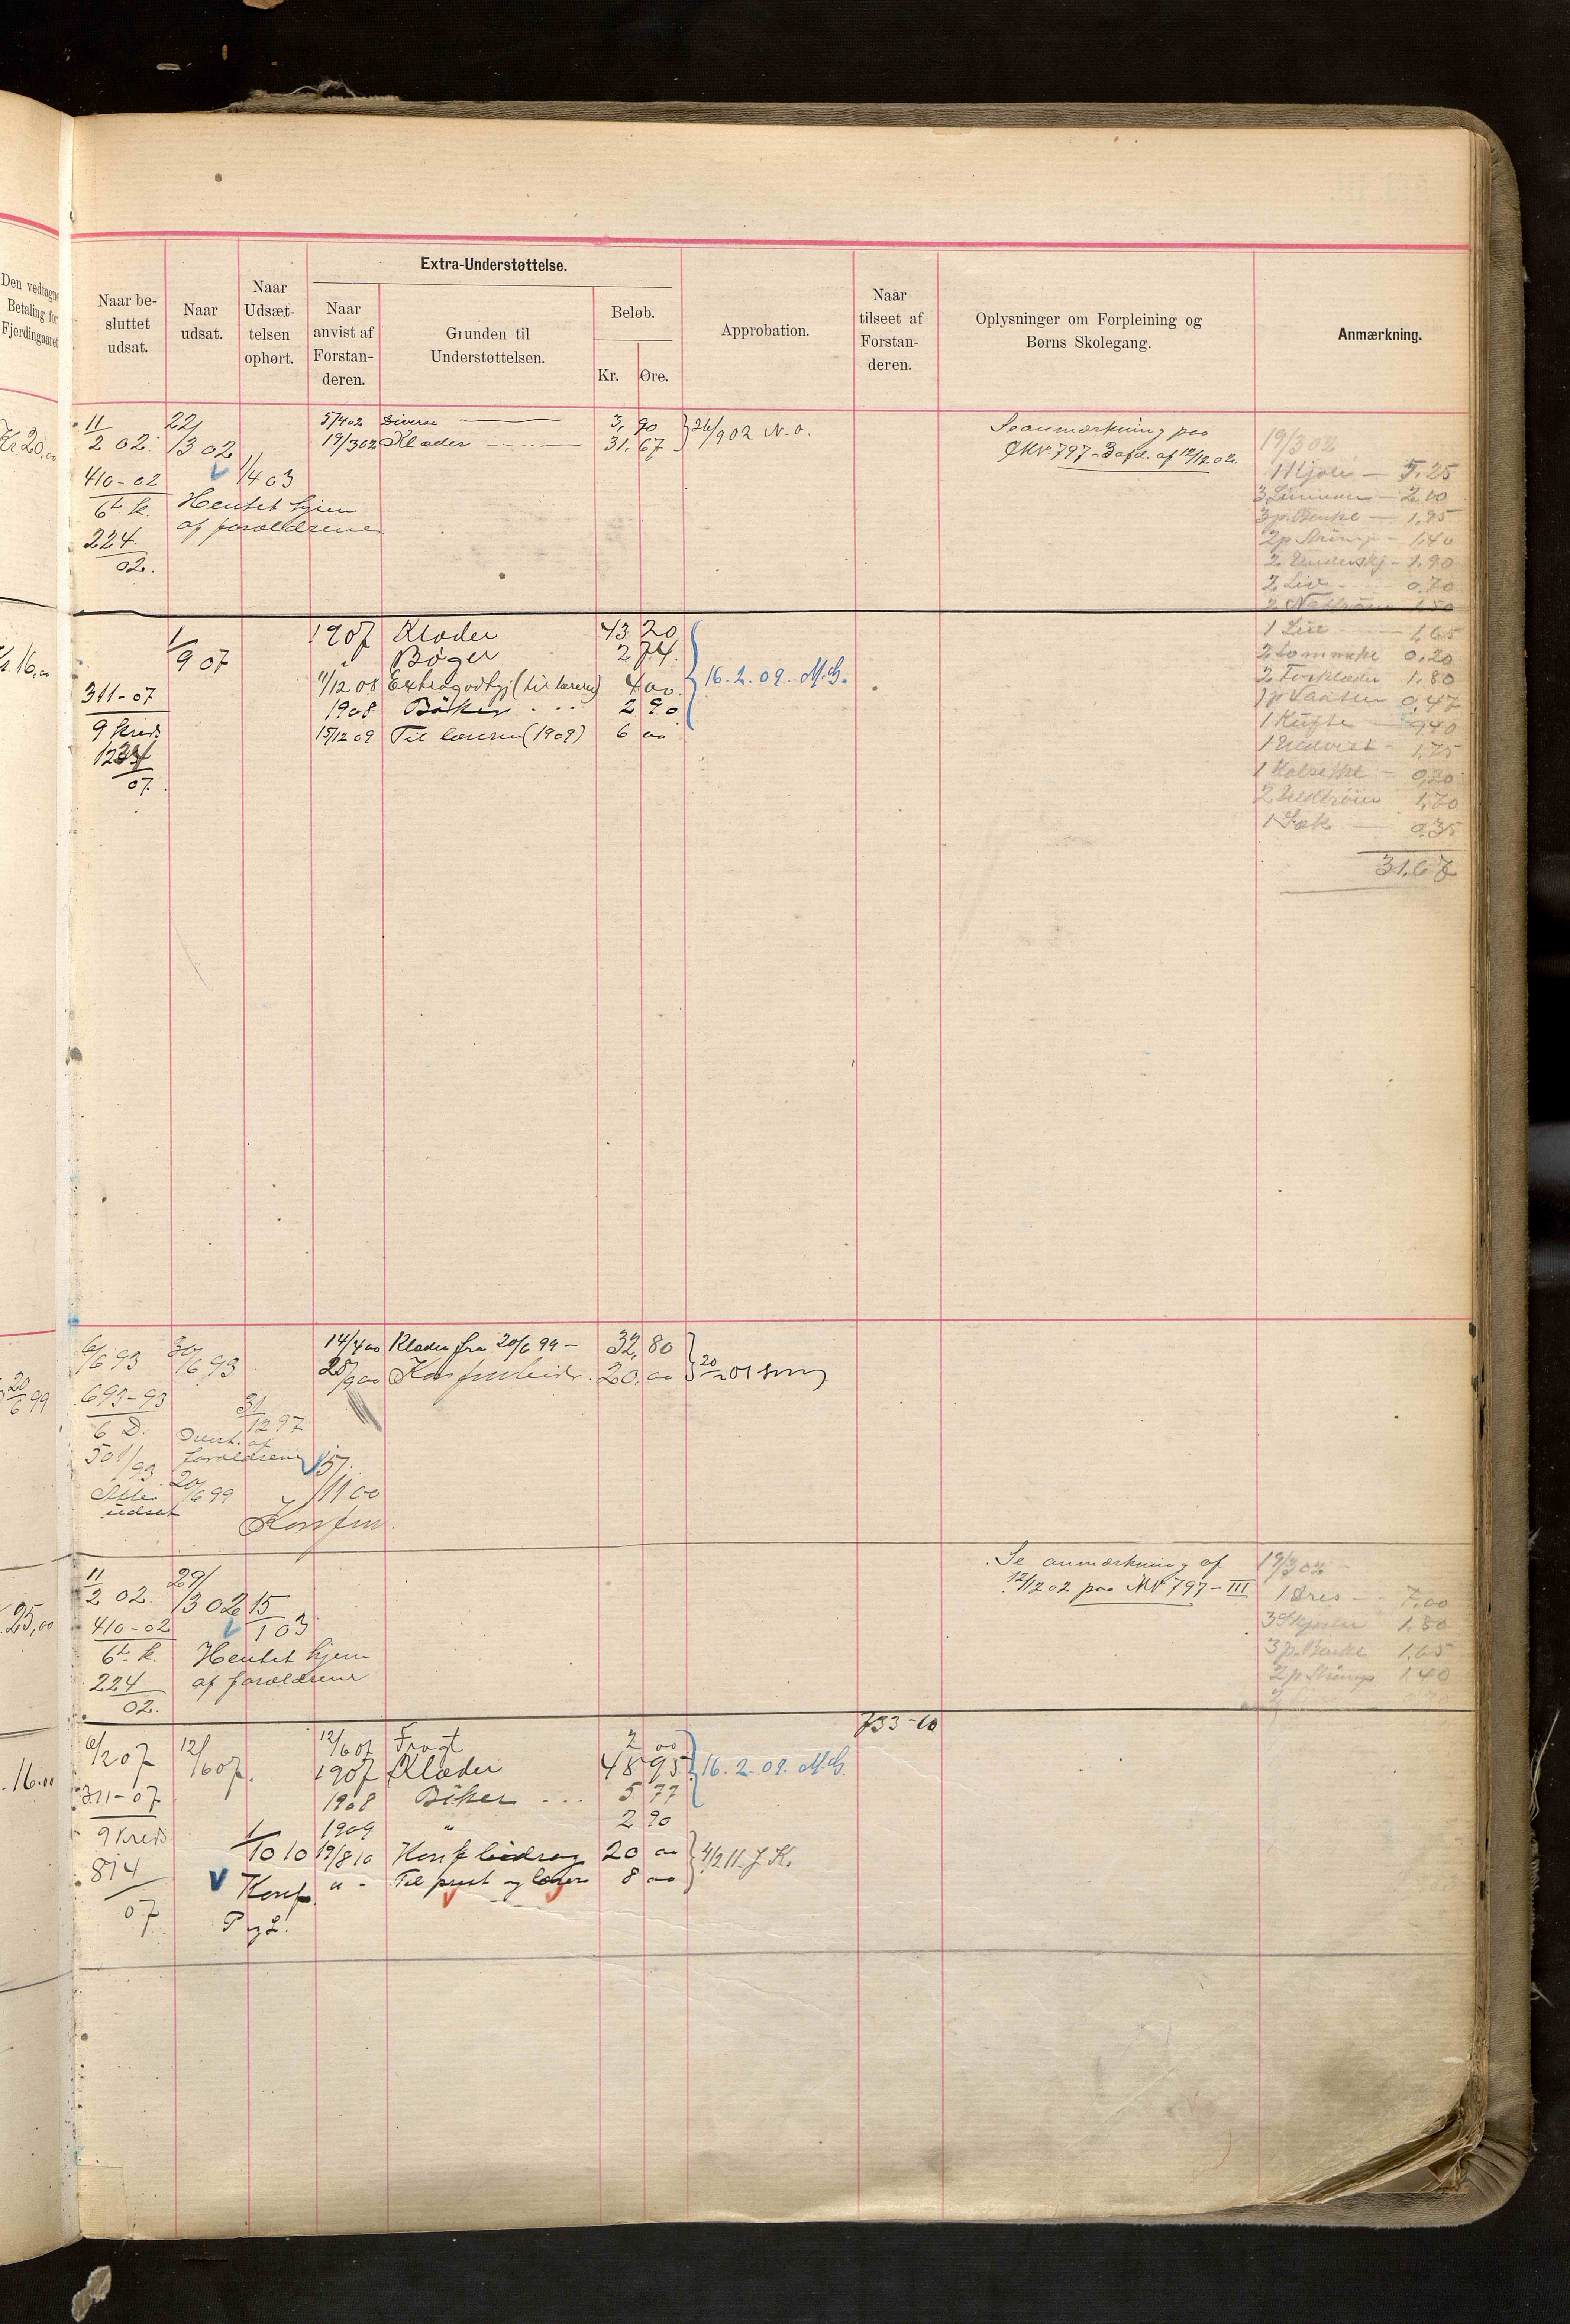 Den vedtagne
Betaling for
Fjerdingaaret
Naar be-
sluttet
udsat.
Naar
udsat.
Naar
Udsæt-
telsen
ophørt.
Extra-Understøttelse.
Naar
anvist af
Forstan-
deren.
Grunden til
Understøttelsen.
Beløb.
Kr. Øre.
Approbation.
Naar
tilseet af
Forstan-
deren.
Oplysninger om Forpleining og
Børns Skolegang.
Anmærkning.
Kr. 20,00
11/2 02.
410-02
6te k.
224/02.
22/3 02
1/4 03
Hentet hjem
af forældrene
5/4 02 Diverse 3,90
19/3 02 Klæder 31,67
26/9 02 N.O.
Se anmærkning paa
797-3 afd. af 12/12 02.
19/3 02
1 Kjole - 5.25
3 Linneder - 2.00
3 p. Benkl - 1.95
2 p Strømp - 1.40
2 Underskj - 1.90
2 Liv - 0.70
1.50
1 1,65
2 Lommekl 0.20
2 Forklæder 1.80
1 p Vanter 0,47
1 Kufte 9,40
1 1.75
1 0,20
2 1.70
1 Sæk - 0.35
31,67
Kr. 16,00
311-07
9 Kreds
07.
1/9 07
1907 Klæder 43 20
" Bøger 2 74.
11/12 08 Extragodtgj (til læreren) 4 00.
1908 Bøker 2 90
15/12 09 Til læreren (1909) 6 00
16.2.09. M.G.
20/6 99
6/6 93
693-93
6 D.
501/93
Atter
udsat
30/6 93
31/12 97
af
forældrene
20/6 99
15/11 00
Konfm.
14/4 00 Klæder fra 20/6 99 - 32,80
28/9 00 Konfmbidr. 20,00
20/2 01
25,00
11/2 02.
410-02
6te k.
224/02.
29/3 02
15/1 03
Hentet hjem
af forældrene
Se anmærkning af
12/12 02 paa 797-III
19/3 02
1 Dres - 7.00
3 Skjorter 1.80
3 p. Benkl 1.65
2 p Strømp 1.40
16.00
6/2 07
311-07
9 Kreds
814/07
12/6 07.
1/10 10
Konf.
P og L.
12/6 07 Fragt 2 00
1907 Klæder 48 95
1908 Bøker 5 77
1909 " 2 90
19/8 10 Konf bidrag 20 00
" - Til prest og lærer 8 00
16.2.09. M.G.
4/2 11. J.K.
733-10